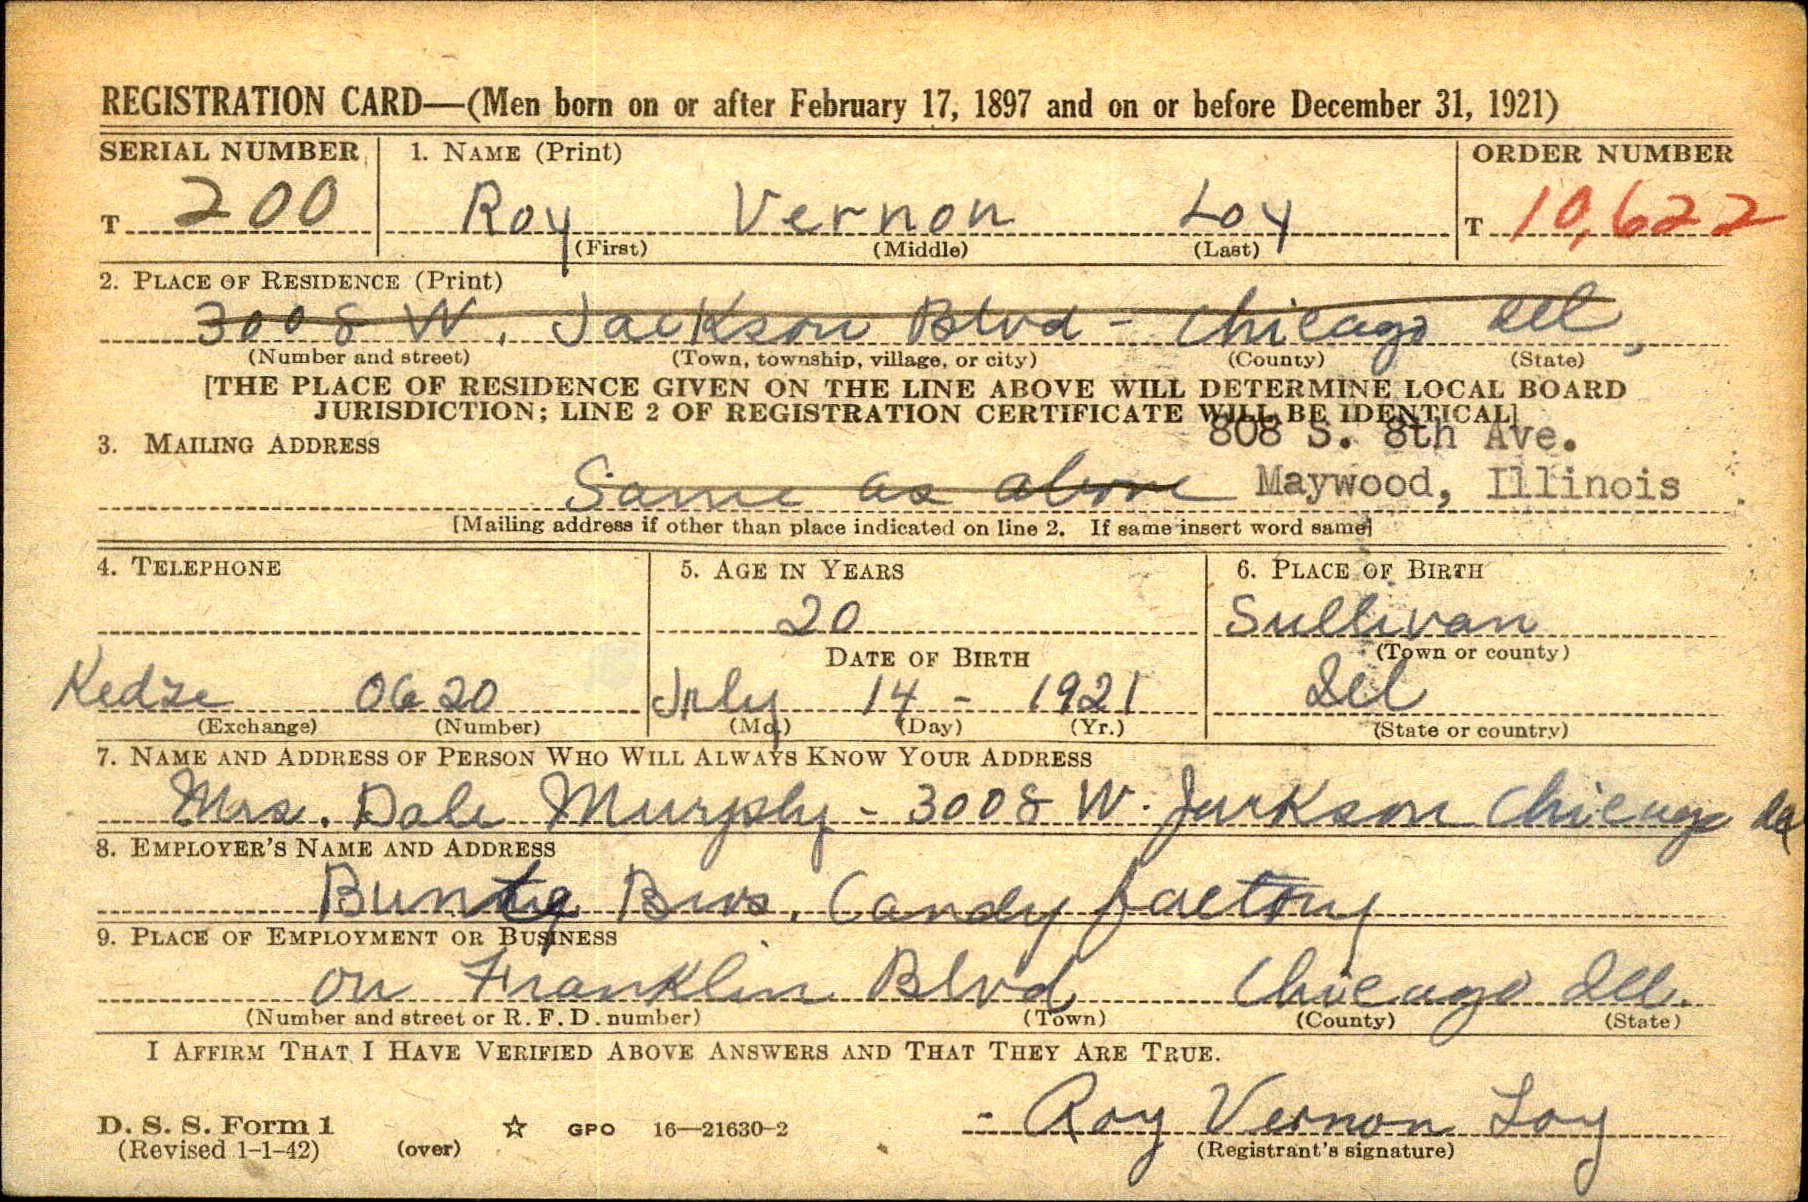 REGISTRATION CARD—(Men born on or after February 17, 1897 and on or before December 31, 1921)
SERIAL NUMBER 1. NAME (Print) ORDER NUMBER
T 200 Roy Vernon Loy T 10,622
(First) (Middle) (Last)
2. PLACE OF RESIDENCE (Print)
3008 W. Jackson Blvd - Chicago Ill,
(Number and street) (Town, township, village, or city) (County) (State)
[THE PLACE OF RESIDENCE GIVEN ON THE LINE ABOVE WILL DETERMINE LOCAL BOARD
JURISDICTION; LINE 2 OF REGISTRATION CERTIFICATE WILL BE IDENTICAL]
808 S. 8th Ave.
3. MAILING ADDRESS
Same as above Maywood, Illinois
[Mailing address if other than place indicated on line 2. If same insert word same]
4. TELEPHONE 5. AGE IN YEARS 6. PLACE OF BIRTH
20 Sullivan
DATE OF BIRTH (Town or county)
Kedze 0620 July 14 - 1921 Ill
(Exchange) (Number) (Mo.) (Day) (Yr.) (State or country)
7. NAME AND ADDRESS OF PERSON WHO WILL ALWAYS KNOW YOUR ADDRESS
Mrs. Dale Murphy - 3008 W. Jackson Chicago Ill
8. EMPLOYER'S NAME AND ADDRESS
Bunte Bros. Candy factory
9. PLACE OF EMPLOYMENT OR BUSINESS
on Franklin Blvd Chicago Ill.
(Number and street or R. F. D. number) (Town) (County) (State)
I AFFIRM THAT I HAVE VERIFIED ABOVE ANSWERS AND THAT THEY ARE TRUE.
- Roy Vernon Loy
D. S. S. Form 1 GPO 16—21630-2
(Revised 1-1-42) (over) (Registrant's signature)